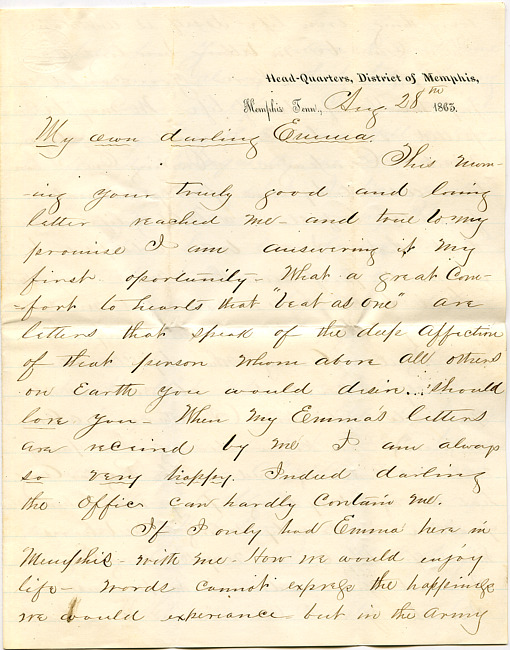 Head-Quarters, District of Memphis,
Memphis Tenn., Aug 28th 1863.
My own darling Emma.
This morn-
ing your truly good and loving
letter reached me - and true to my
promise I am answering it my
first oportunity - What a great com-
fort to hearts that "beat as one" are
letters that speak of the deep affection
of that person whom above all others
on Earth you would desire should
love you - When my Emma's letters
are received by me I am always
so very happy. Indeed darling
the Office can hardly contain me.
If I only had Emma here in
Memphis - with me - How we would enjoy
life - words cannot express the happiness
we would experiance - but in the army